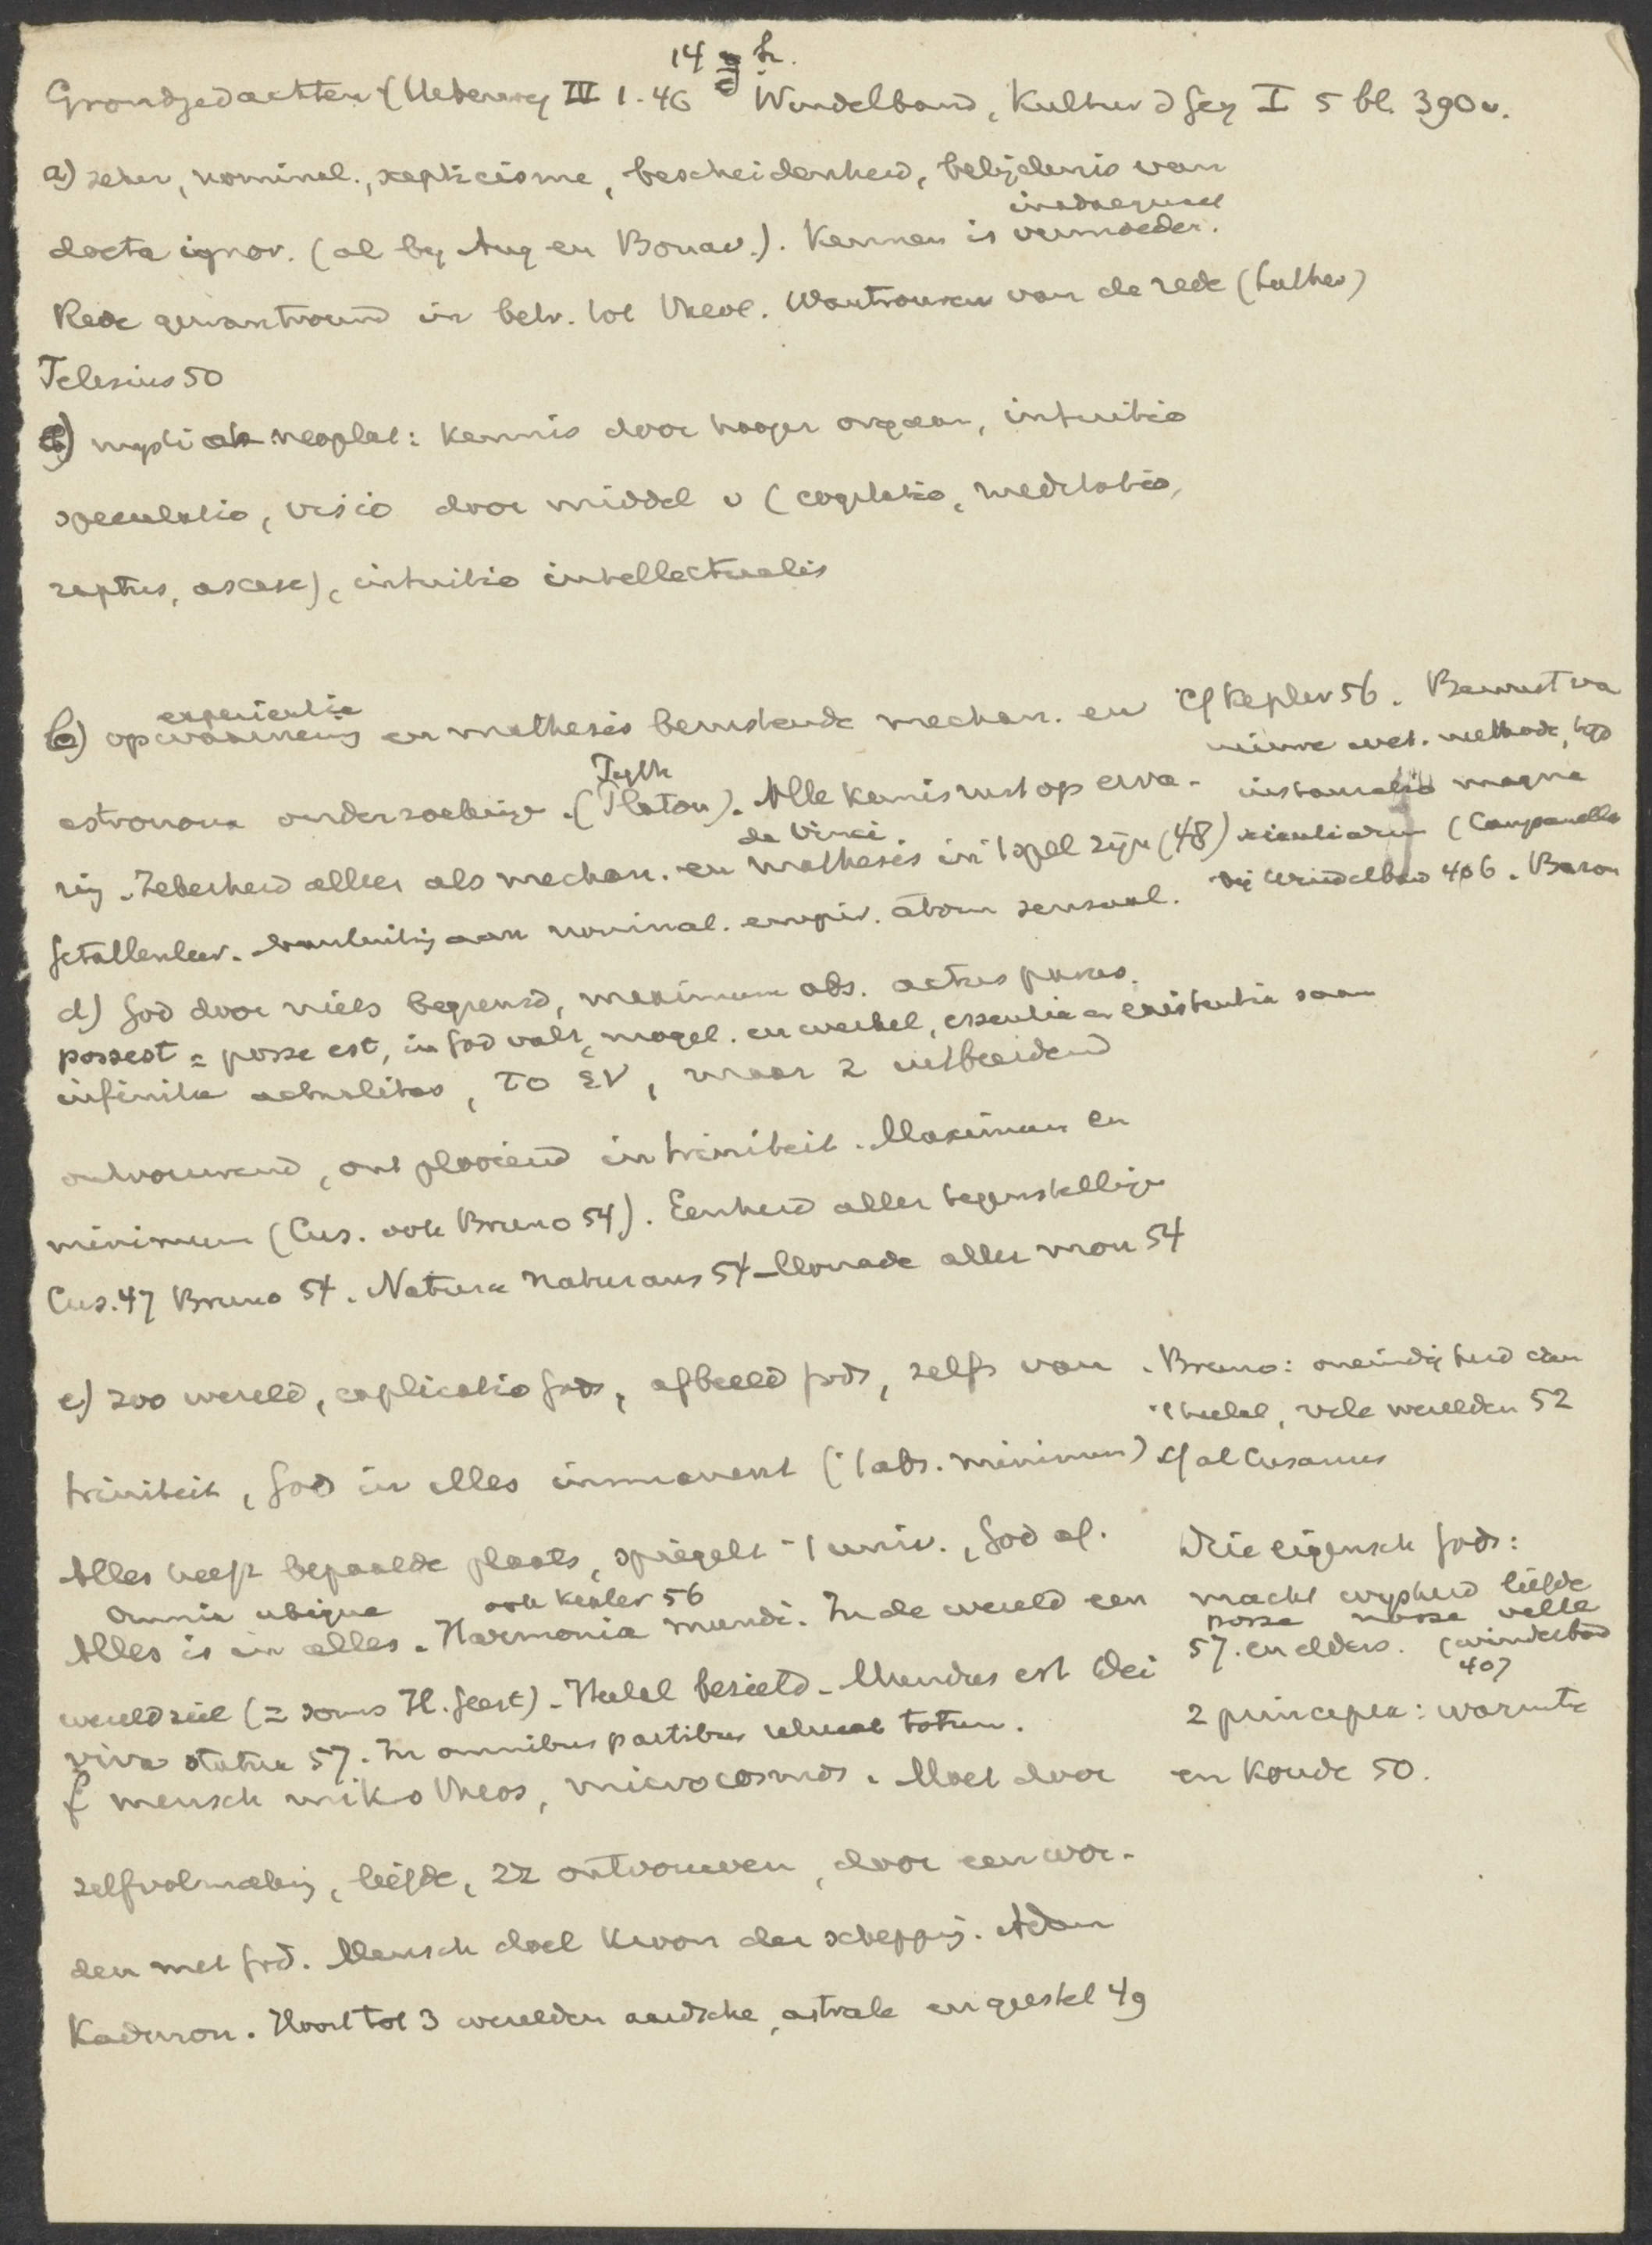 14 Fr.
Grondgedachten (Ueberweg III 1. 46 Windelband, Kultur d Geg I 5 bl. 390v.
a) zeker, nominal., scepticisme, bescheidenheid, belijdenis van
inadaequaat
docta ignor. (al by Aug en Bonav.). Kennen is vermoeden.
Rede gewantrouwd in betr. tot theol. Wantrouwen van de rede (Luther)
Telesius 50
mystiek neoplat: kennis door hooger orgaan, intuitio
speculatio, visio door middel v (cogitatio, meditatio,
raptus, ascese), intuitio intellectualis
experientia
b) op waarneming en mathesis berustende mechan. en
astronom onderzoekinge. (Platon). Alle kennis rust op erva-
da Vinci.
ring. Zekerheid alleen als mechan. en mathesis in 't spel zijn (48)
Getallenleer. aan nominal. empir. atom sensual.
Cf Kepler 56. Bewust va
nieuwe wet. methode,
instauratio magna
scientiarum (Campanella
bij Windelband 406. Bacon
d) God door niets begrensd, maximum abs. actus purus.
possest = posse est, in God valt mogel. en werkel, essentia en existentia saam
infinita actualitas, το ἑν, maar z uitbreidend
ontvouwend, ontplooiend in triniteit. Maximum en
minimum (Cus. ook Bruno 54). Eenheid aller tegenstellinge
Cus. 47 Bruno 54. Natura naturans 54 - Monade aller mon 54
e) zoo wereld, explicatio Gods, afbeeld Gods, zelfs van
triniteit, God in alles immanent ('t abs. minimum)
. Bruno: oneindigheid van
't heelal, vele werelden 52
cf al Cusanus
Alles heeft bepaalde plaats, spiegelt 't univ., God af.
omnia ubique ook Kepler 56
Alles is in alles. Harmonia mundi. In de wereld een
wereldziel (= soms H. Geest). Heelal bezield. Mundus est Dei
viva statua 57. In omnibus partibus relucet totum.
Drie eigensch Gods:
macht wysheid liefde
posse nosse velle
57. en elders. (Windelband
407
2 principes: warmte
en Koude 50.
f mensch mikro theos, microcosmos. Moet door
zelfvolmaking, liefde, zz ontvouwen, door een wor-
den met God. Mensch doel kroon der schepping. Adam
Kadmon. Hoort tot 3 werelden aardsche, astrale en geestel 49